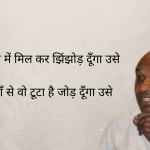 में मिल कर झिंझोड़ दूँगा उसे
से वो टूटा है जोड़ दूँगा उसे